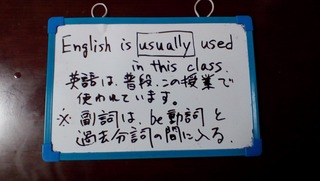 English is usually used
in this class.
英語は、普段、この授業で
使われています。
※ 副詞は、be動詞と
過去分詞の間に入る.